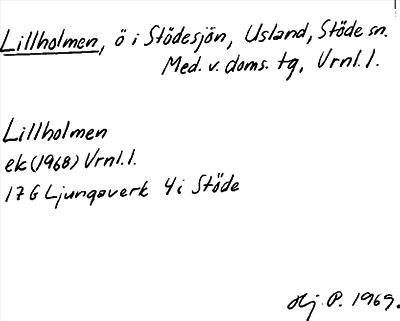 Lillholmen, ö i Stödesjön, Usland, Stöde sn.
Med. v. doms. tg, Vrnl. l.
Lillholmen
ek (1968) Vrnl. l.
17 G Ljungaverk 4 i Stöde
Hj. P. 1969.